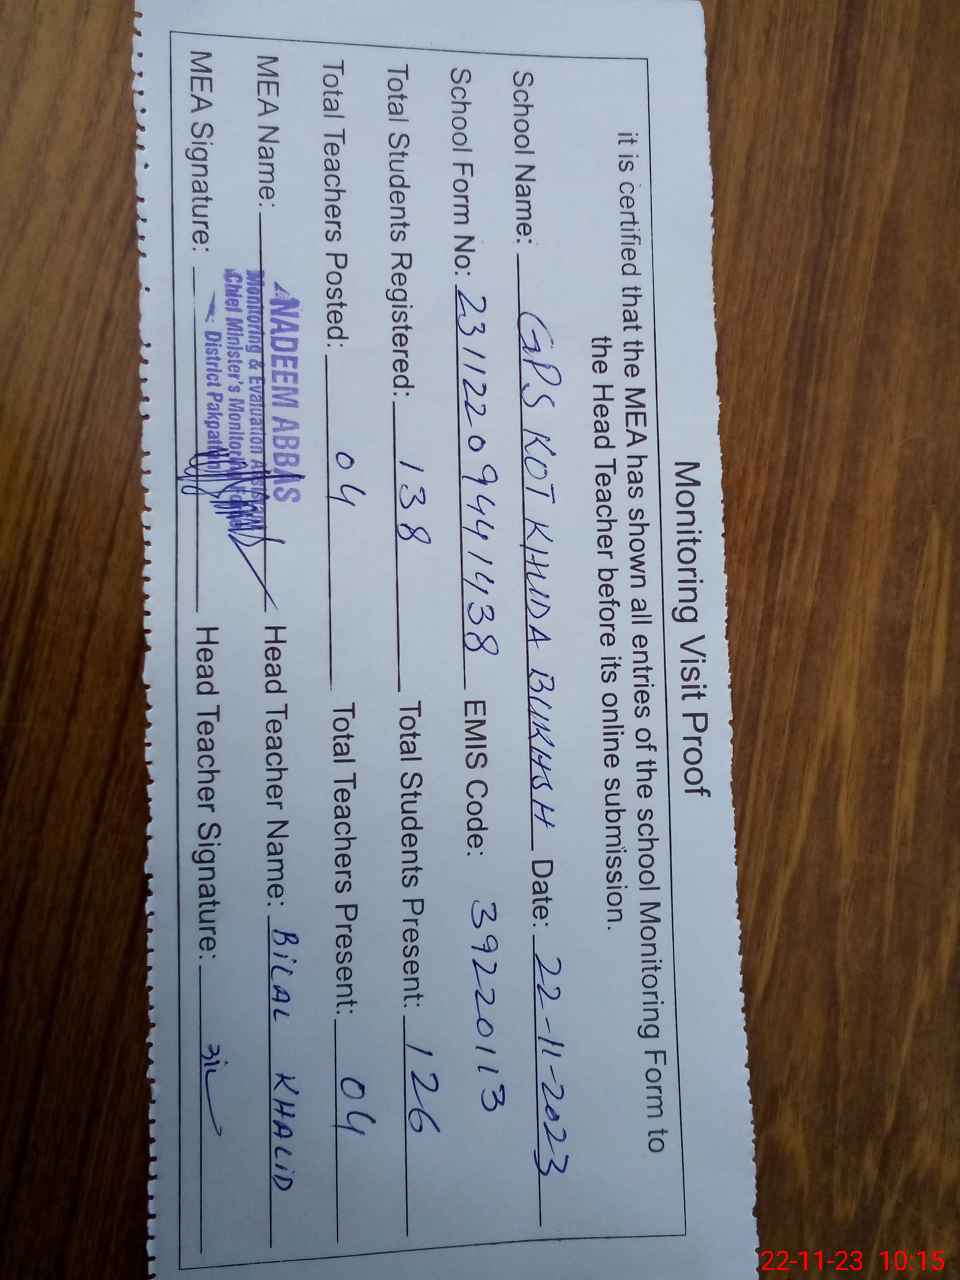 Monitoring Visit Proof
it is certified that the MEA has shown all entries of the school Monitoring Form to
the Head Teacher before its online submission.
School Name: GPS KOT KHUDA BUKHSH Date: 22-11-2023
School Form No: 23112209441438 EMIS Code: 39220113
Total Students Registered: 138 Total Students Present: 126
Total Teachers Posted: 04 Total Teachers Present: 04
MEA Name: NADEEM ABBAS Head Teacher Name: BILAL KHALID
Monitoring & Evaluation
Chief Minister's
MEA Signature: District Pakpattan Head Teacher Signature:
22-11-23 10:15